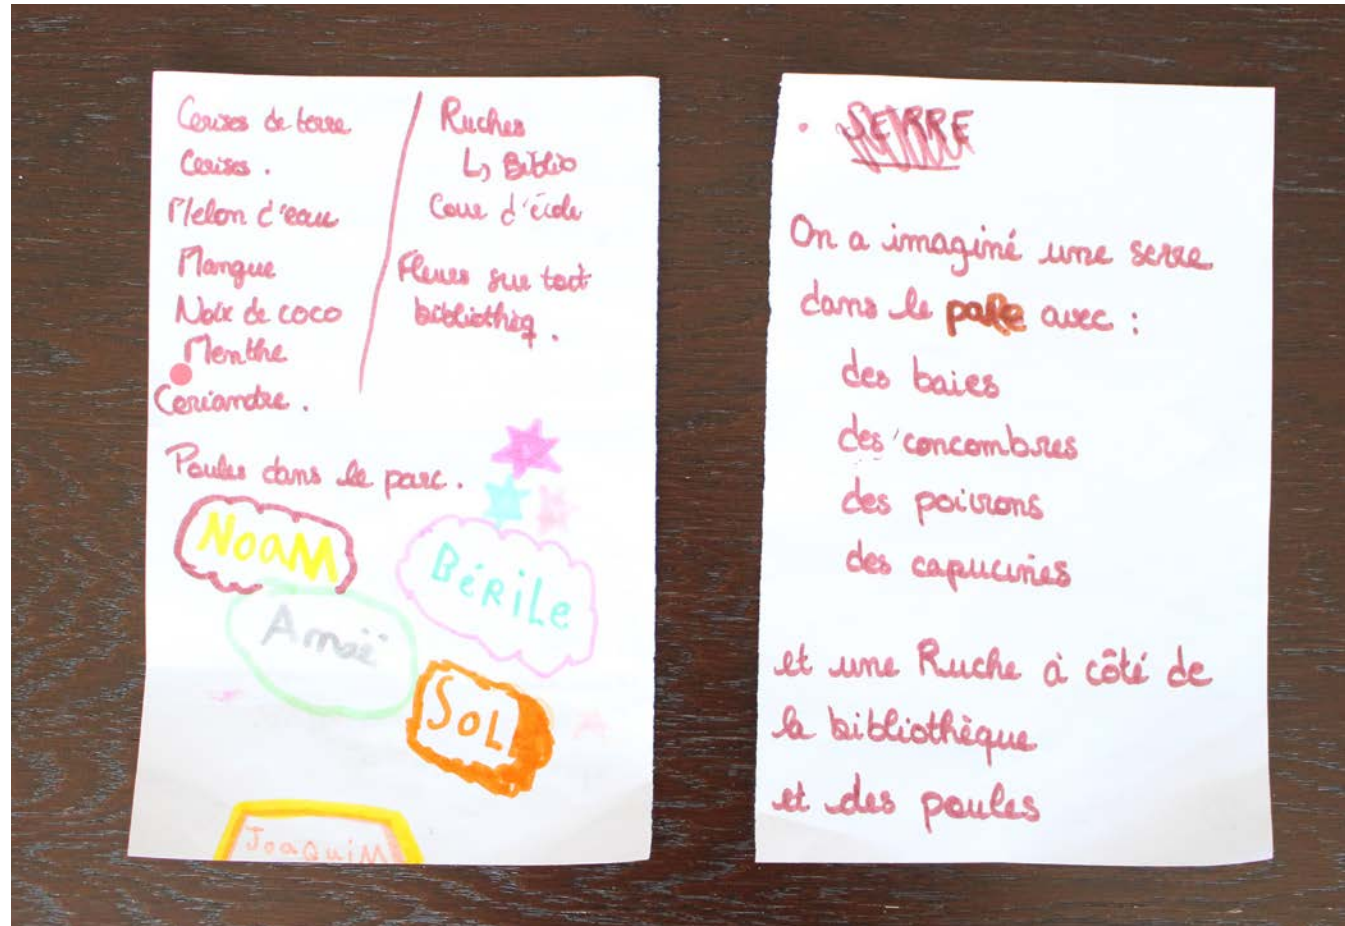 Cerises de terre
Cerises.
Melon d'eau
Mangue
Noix de coco
Menthe
Coriandre.
Ruches
↳ Biblio
Cour d'école
Fleurs sur toit
bibliothèq.
Poules dans le parc.
NoaM
BéRiLe
Anaë
SoL
JoaquiM
• SERRE
On a imaginé une serre
dans le parc avec :
des baies
des concombres
des poivrons
des capucines
et une Ruche à côté de
la bibliothèque
et des poules